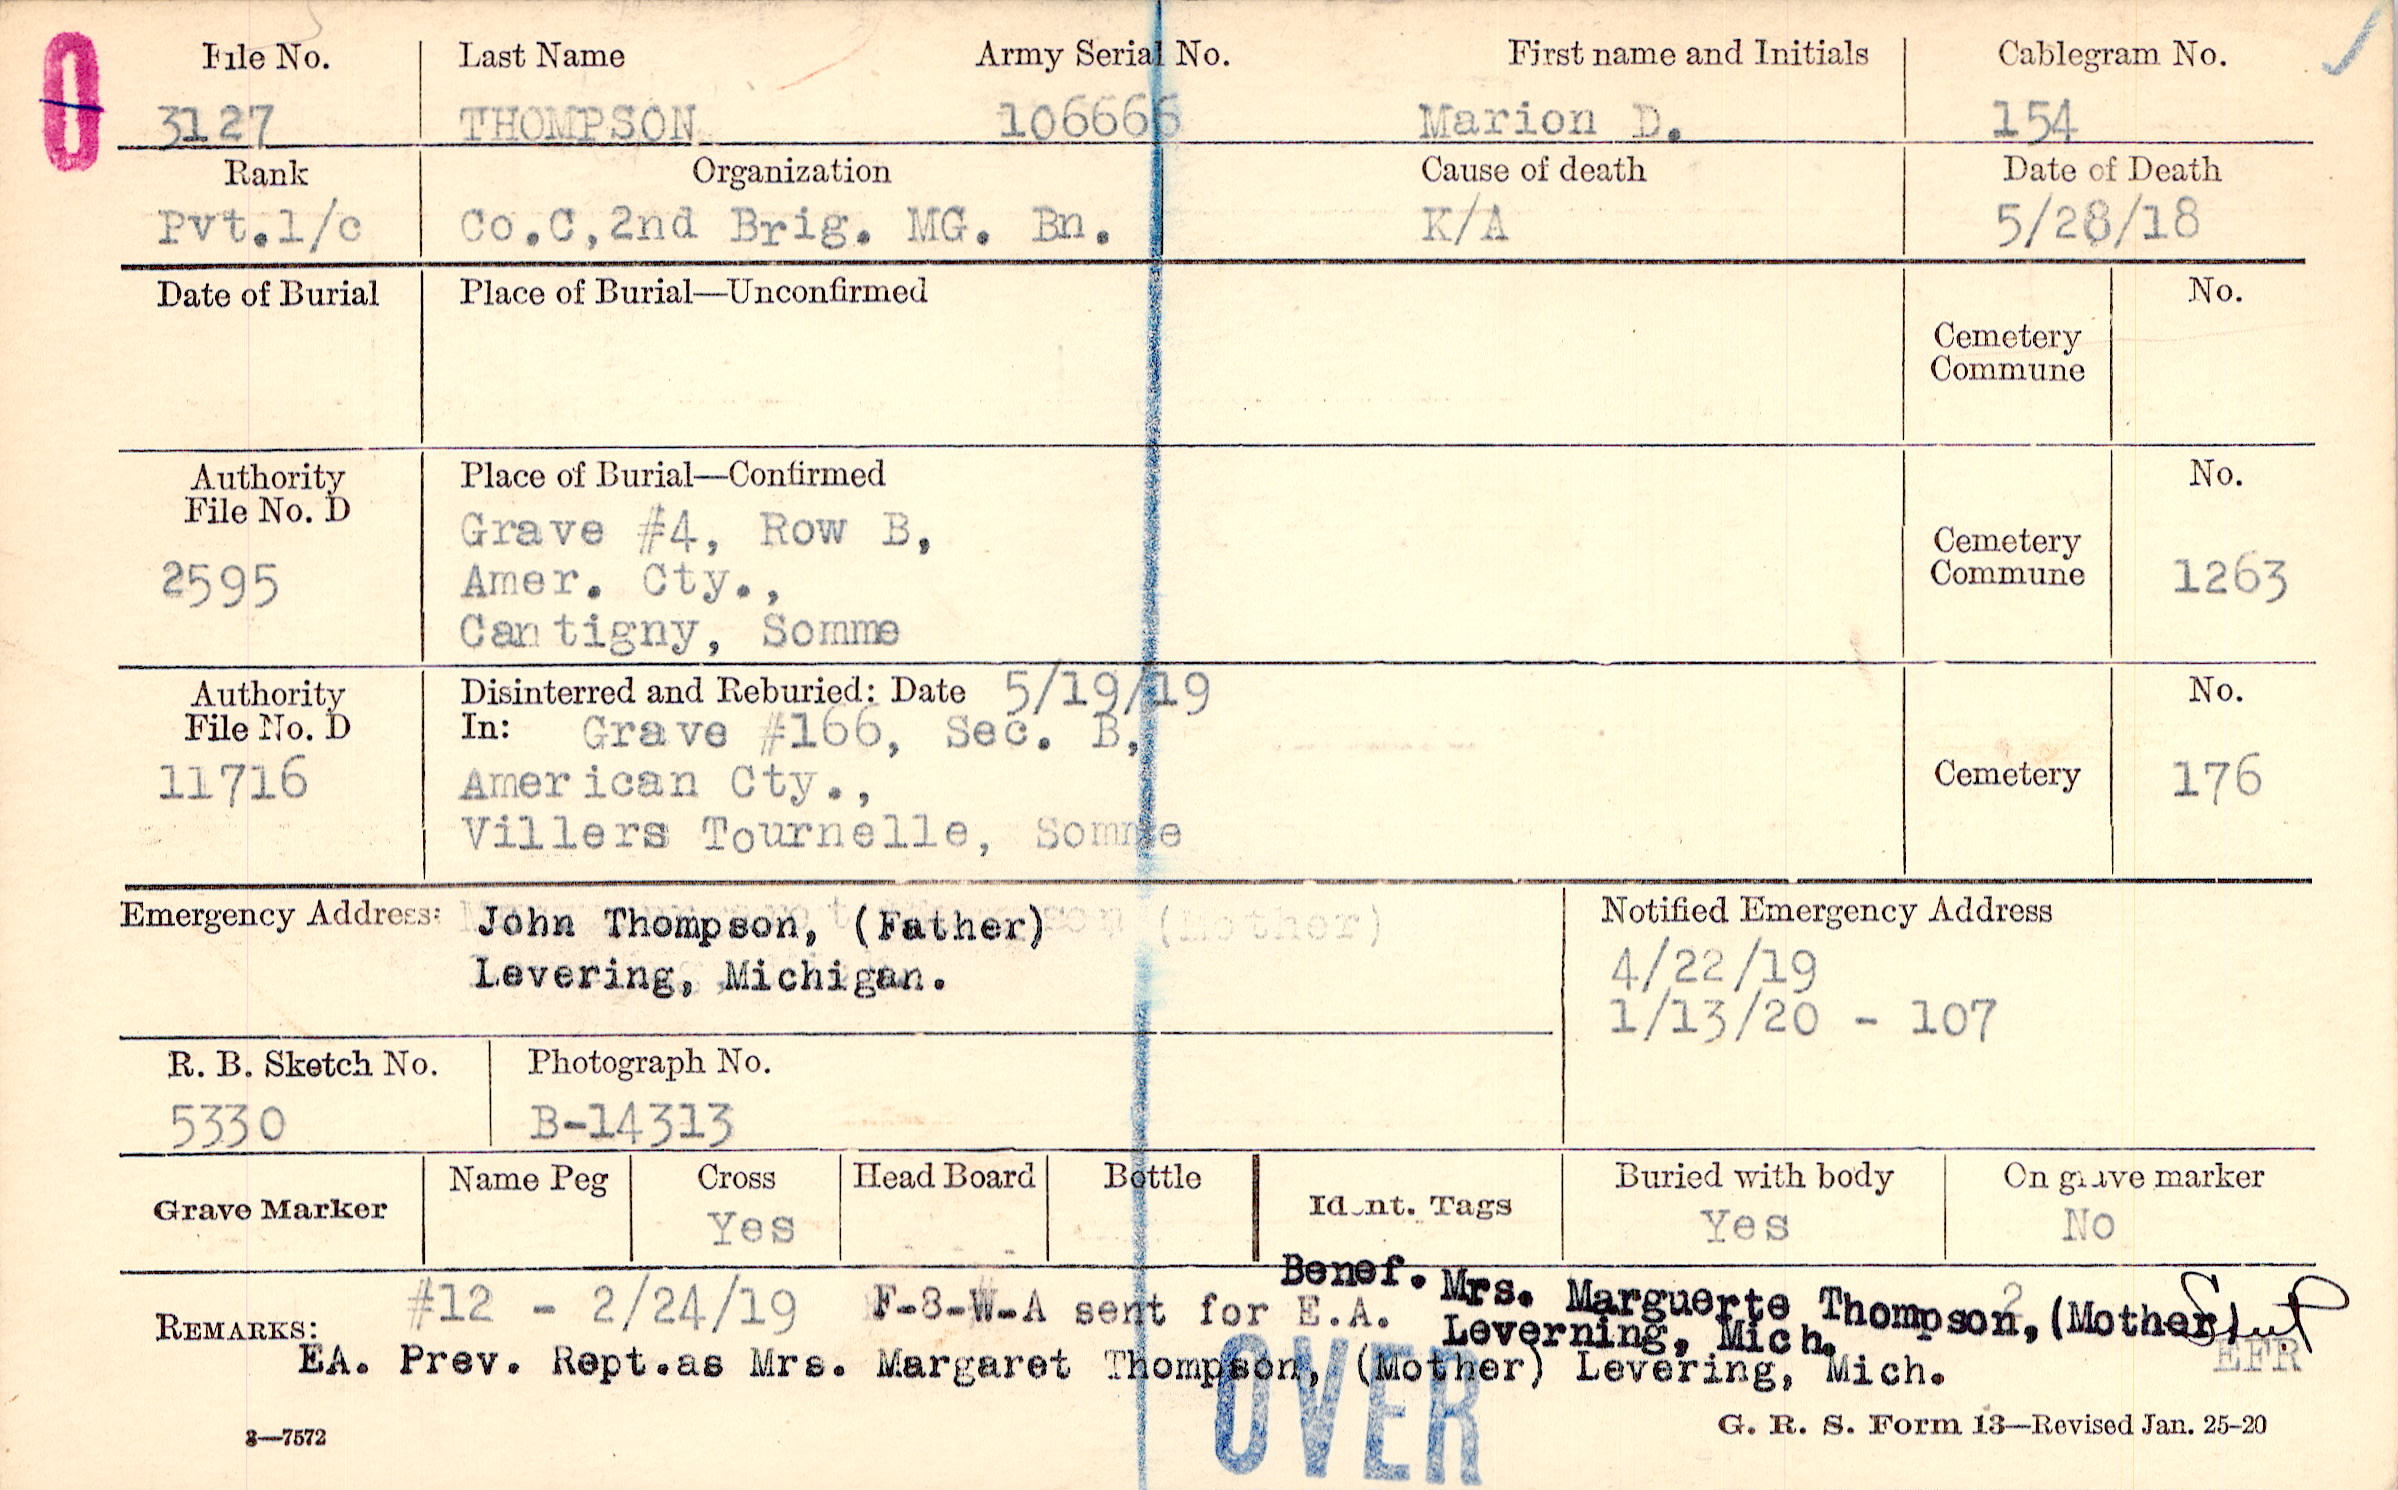 File No. Last Name Army Serial No. First name and Initials Cablegram No.
3127 THOMPSON 106666 Marion D. 154
Rank Organization Cause of death Date of Death
Pvt.1/c Co.C,2nd Brig. MG. Bn. K/A 5/28/18
Date of Burial Place of Burial—Unconfirmed No.
Cemetery
Commune
Authority Place of Burial—Confirmed No.
File No. D
Grave #4, Row B,
Cemetery
2595 Amer. Cty., Commune 1263
Cantigny, Somme
Authority Disinterred and Reburied: Date 5/19/19 No.
File No. D In: Grave #166, Sec. B,
11716 American Cty., Cemetery 176
Villers Tournelle, Somme
Emergency Address: John Thompson, (Father) (Mother) Notified Emergency Address
Levering, Michigan. 4/22/19
1/13/20 - 107
R. B. Sketch No. Photograph No.
5330 B-14313
Grave Marker Name Peg Cross Head Board Bottle Ident. Tags Buried with body On grave marker
Yes Yes No
Benef. Mrs. Marguerte Thompson, (Mother)
REMARKS: #12 - 2/24/19 F-8-W-A sent for E.A. Leverning, Mich.
2
EA. Prev. Rept.as Mrs. Margaret Thompson, (Mother) Levering, Mich. EFR
OVER
3—7572 G. R. S. Form 13—Revised Jan. 25-20